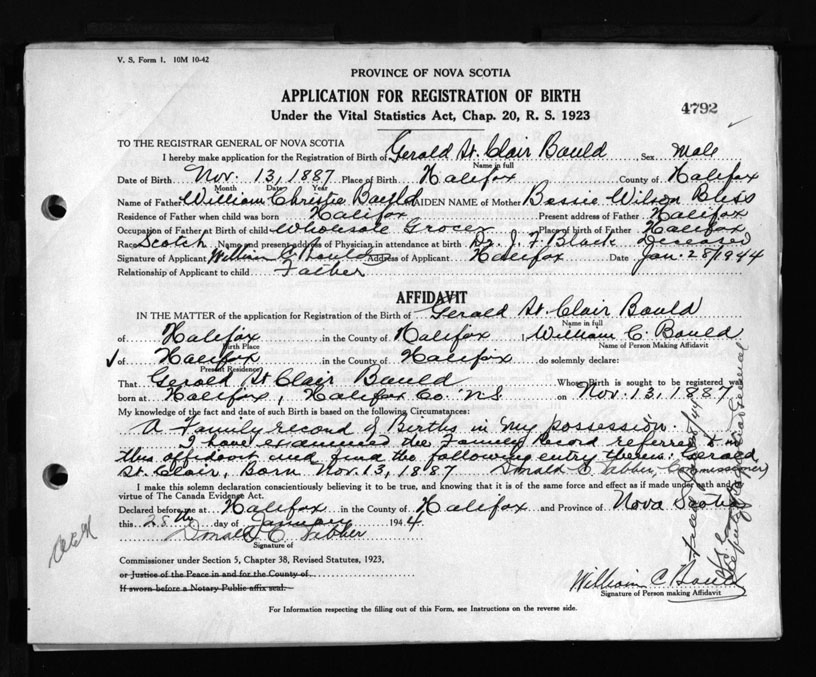 V. S. Form 1. 10M 10-42
PROVINCE OF NOVA SCOTIA
APPLICATION FOR REGISTRATION OF BIRTH
4792
Under the Vital Statistics Act, Chap. 20, R. S. 1923
TO THE REGISTRAR GENERAL OF NOVA SCOTIA
I hereby make application for the Registration of Birth of Gerald St. Clair Bauld Sex Male
Name in full
Date of Birth Nov. 13, 1887 Place of Birth Halifax County of Halifax
Month Date Year
Name of Father William Christie Bauld MAIDEN NAME of Mother Bessie Wilson Bliss
Residence of Father when child was born Halifax Present address of Father Halifax
Occupation of Father at Birth of child Wholesale Grocer Place of birth of Father Halifax
Race Scotch Name and present address of Physician in attendance at birth Dr. J. F. Black Deceased
Signature of Applicant William C. Bauld Address of Applicant Halifax Date Jan. 28/1944
Relationship of Applicant to child Father
AFFIDAVIT
IN THE MATTER of the application for Registration of the Birth of Gerald St. Clair Bauld
Name in full
of Halifax in the County of Halifax, William C. Bauld
Birth Place Name of Person Making Affidavit
of Halifax in the County of Halifax do solemnly declare:
Present Residence
That Gerald St Clair Bauld Whose Birth is sought to be registered was
born at Halifax, Halifax Co. N.S. on Nov. 13, 1887
My knowledge of the fact and date of such Birth is based on the following Circumstances:
A Family record of Births in my possession.
I have examined the Family Record referred to in
this affidavit and find the following entry therein: Gerald
St. Clair, Born Nov. 13, 1887 Donald C Webber, Commissioner)
I make this solemn declaration conscientiously believing it to be true, and knowing that it is of the same force and effect as if made under oath and by
virtue of The Canada Evidence Act.
Declared before me at Halifax in the County of Halifax and Province of Nova Scotia
this 28th day of January 1944
Donald C. Webber
Signature of
Commissioner under Section 5, Chapter 38, Revised Statutes, 1923,
or Justice of the Peace in and for the County of
If sworn before a Notary Public affix seal.
William C. Bauld
Signature of Person making Affidavit
For Information respecting the filling out of this Form, see Instructions on the reverse side.